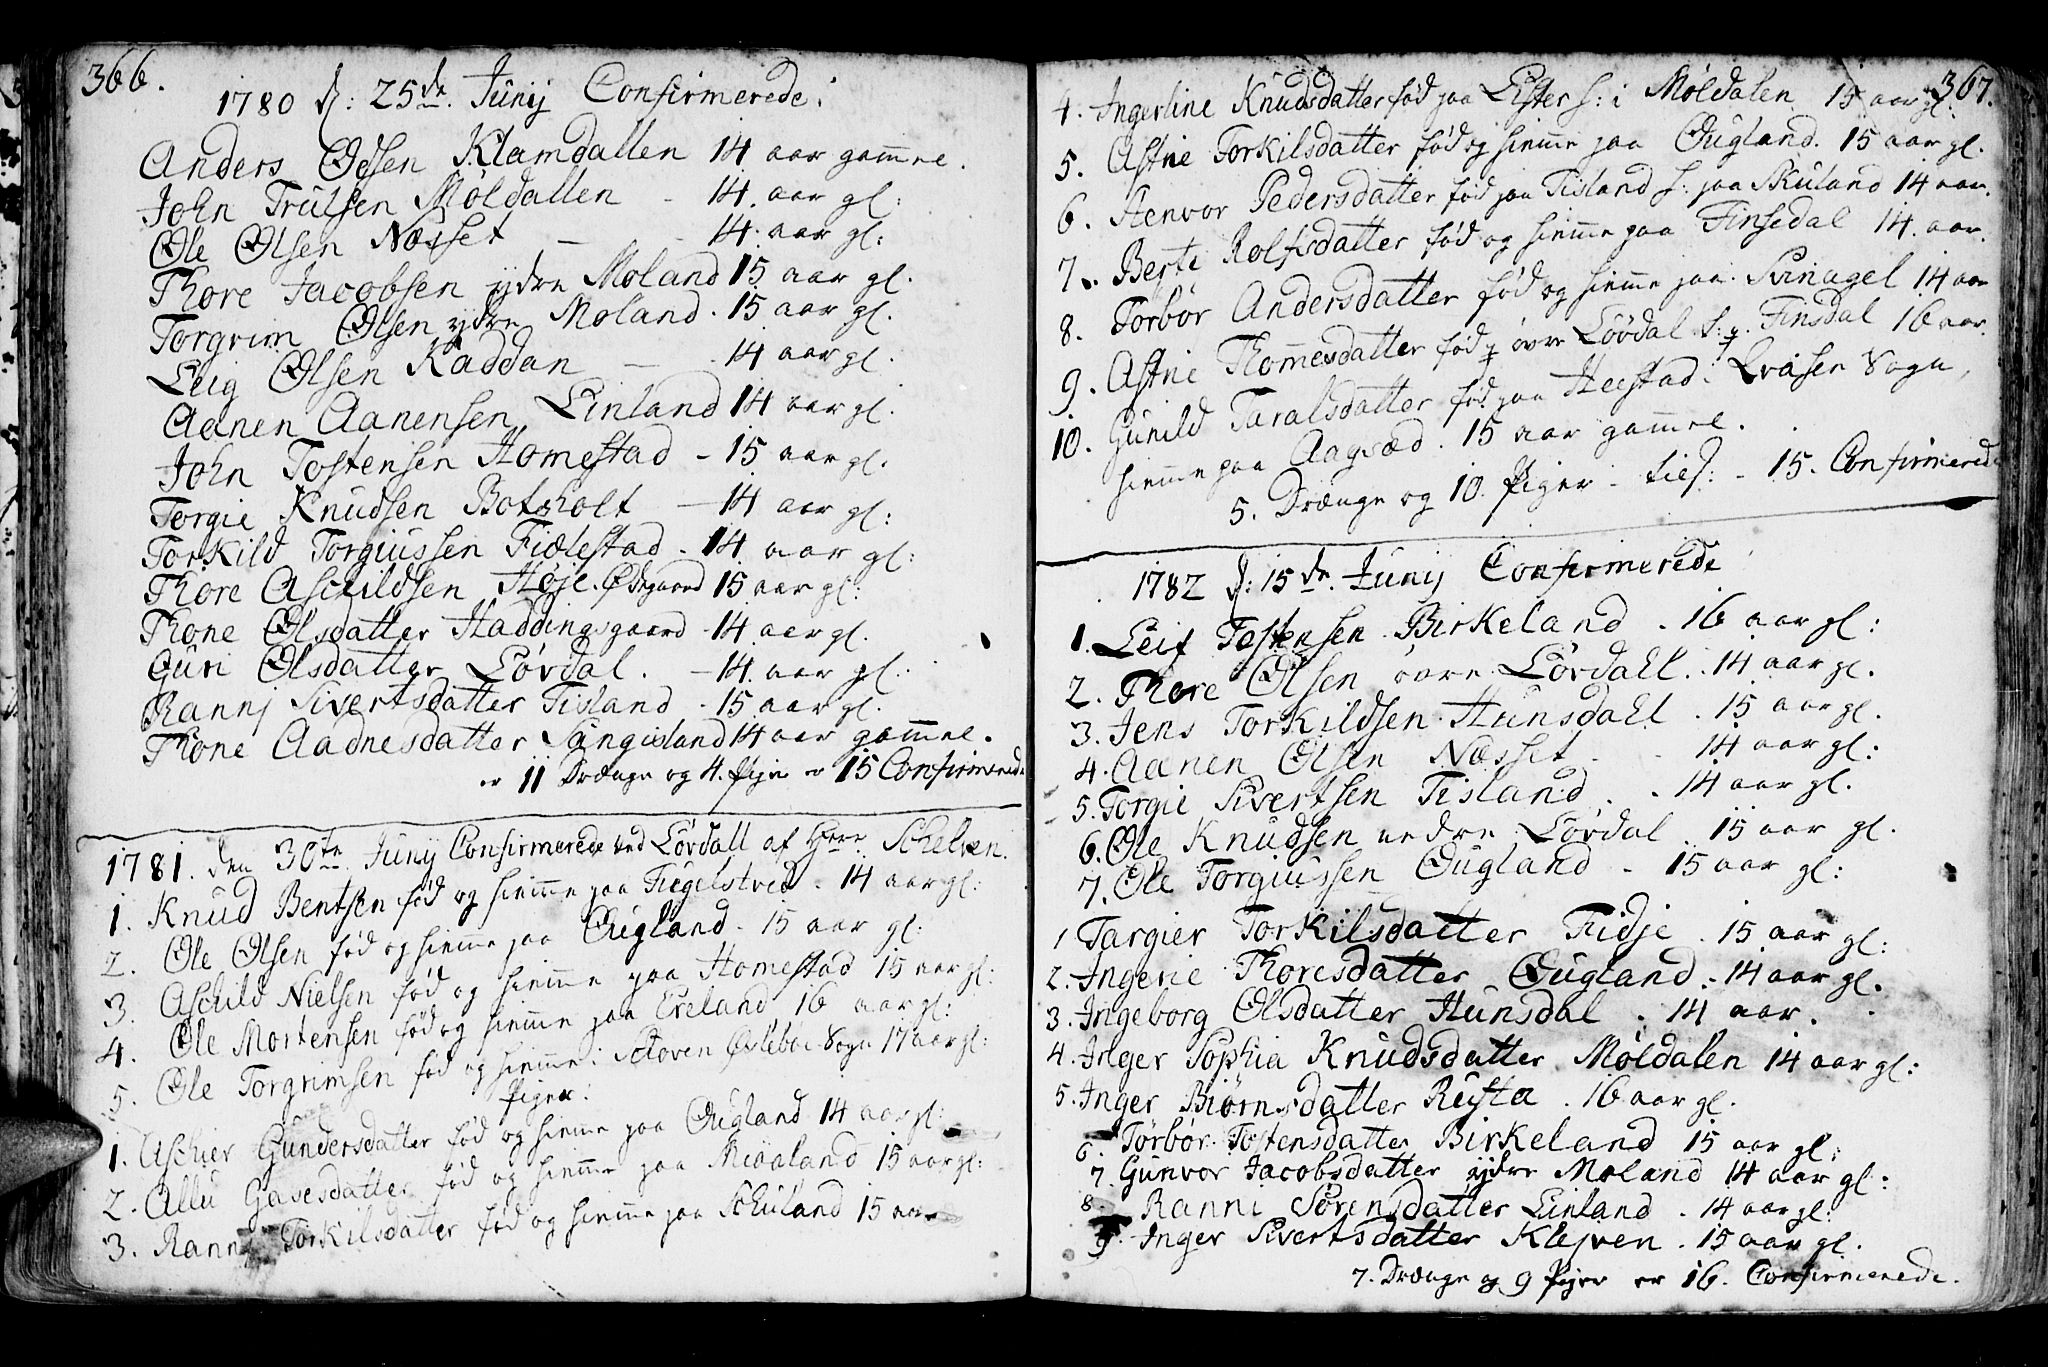 366.
1780 d: 25de Junij Confirmerede:
Anders Olsen Klamdallen 14 aar gammel.
John Trulsen Møldallen - 14. aar gl:
Ole Olsen Næsset - - 14. aar gl:
Thore Jacobsen ydre Moland 15 aar gl.
Torgrim Olsen ydre Moland. 15 aar gl.
Leig Olsen Kaddan - - 14 aar gl.
Aanen Aanensen Einland 14 aar gl.
John Tostensen Homestad - 15 aar gl.
Torgie Knudsen Botsholt - 14 aar gl:
Torkild Torgiussen Fidlestad - 14 aar gl:
Thore Aschildsen Høje. Ødegaard 15 aar gl:
Thone Olsdatter Haddingsgaard - 14 aar gl.
Guri Olsdatter Løvdal. - 14. aar gl.
Rannj Sivertsdatter Tisland - 15 aar gl.
Thone Aadnesdatter Sangisland 14 aar gammel.
er 11 Drænge og 4. Piger er 15 Confirmerede
1781. den 30te Junij Confirmerede ved Løvdall af Herr Schelven.
1. Knud Bentsen fød og hiemme paa Tiegelstved - 14 aar gl:
2. Ole Olsen fød og hiemme paa Ougland - 15 aar gl:
3. Aschild Nielsen fød og hiemme paa Homestad 15 aar gl:
4. Ole Mortensen fød og hiemme paa Ereland 16 aar gl:
5. Ole Torgrimsen fød og hiemme i Øslebøe Sogn 17 aar gl:
Piger:
1. Aschier Gundersdatter fød og hiemme paa Ougland 14 aar gl:
2. Allu Gavesdatter fød og hiemme paa Mioaland 15 aar gl:
3. Ranni Torkilsdatter fød og hiemme paa Schuland 15 aar
367.
4. Ingerline Knudsdatter fød paa Lister h: i Møldalen 15 aar gl.
5. Astrie Torkilsdatter fød og hiemme paa Ougland. 15 aar gl.
6. Stenvor Pedersdatter fød paa Tisland h: paa Skuland 14 aar.
7. Berte Rolfsdatter fød og hiemme paa Finsedal 14. aar.
8. Torbør Andersdatter fød og hiemme paa Svinagel 14 aar
9. Astrie Thomesdatter fød p øvre Løvdal h: p. Finsdal 16 aar.
10. Gunild Taralsdatter fød paa Heestad i Qvasen Sogn,
hiemme paa Aagsæd. 15 aar gammel.
5. Drænge og 10. Piger - - 15. Confirmerede
1782 d: 15de. Junij Confirmerede
1. Leif Tostensen Birkeland - 16 aar gl:
2. Thore Olsen øvre Løvdall. 14 aar gl.
3. Jens Torkildsen Hunsdall. 15 aar gl.
4. Aanen Olsen Næsset - - 14 aar gl:
5. Torgie Sivertsen Tisland. - 14 aar gl.
6. Ole Knudsen nedre Løvdal 15 aar gl.
7. Ole Torgiussen Ougland - 15 aar gl:
1 Targier Torkilsdatter Fidje. 15 aar gl:
2. Ingerie Thoresdatter Ougland. 14 aar gl.
3. Ingeborg Olsdatter Hunsdal. 14 aar.
4. Inger Sophia Knudsdatter Møldalen 14 aar gl:
5. Inger Biørnsdatter Rusta. 16 aar gl.
6. Torbør Tostensdatter Birkeland 15 aar gl:
7. Gunvor Jacobsdatter ydre Moland 14 aar gl:
8 Ranni Sørensdatter Einland. 14 aar gl:
9 Inger Sivertsdatter Klejven. 15 aar gl.
7. Drænge og 9 Piger er 16. Confirmerede.